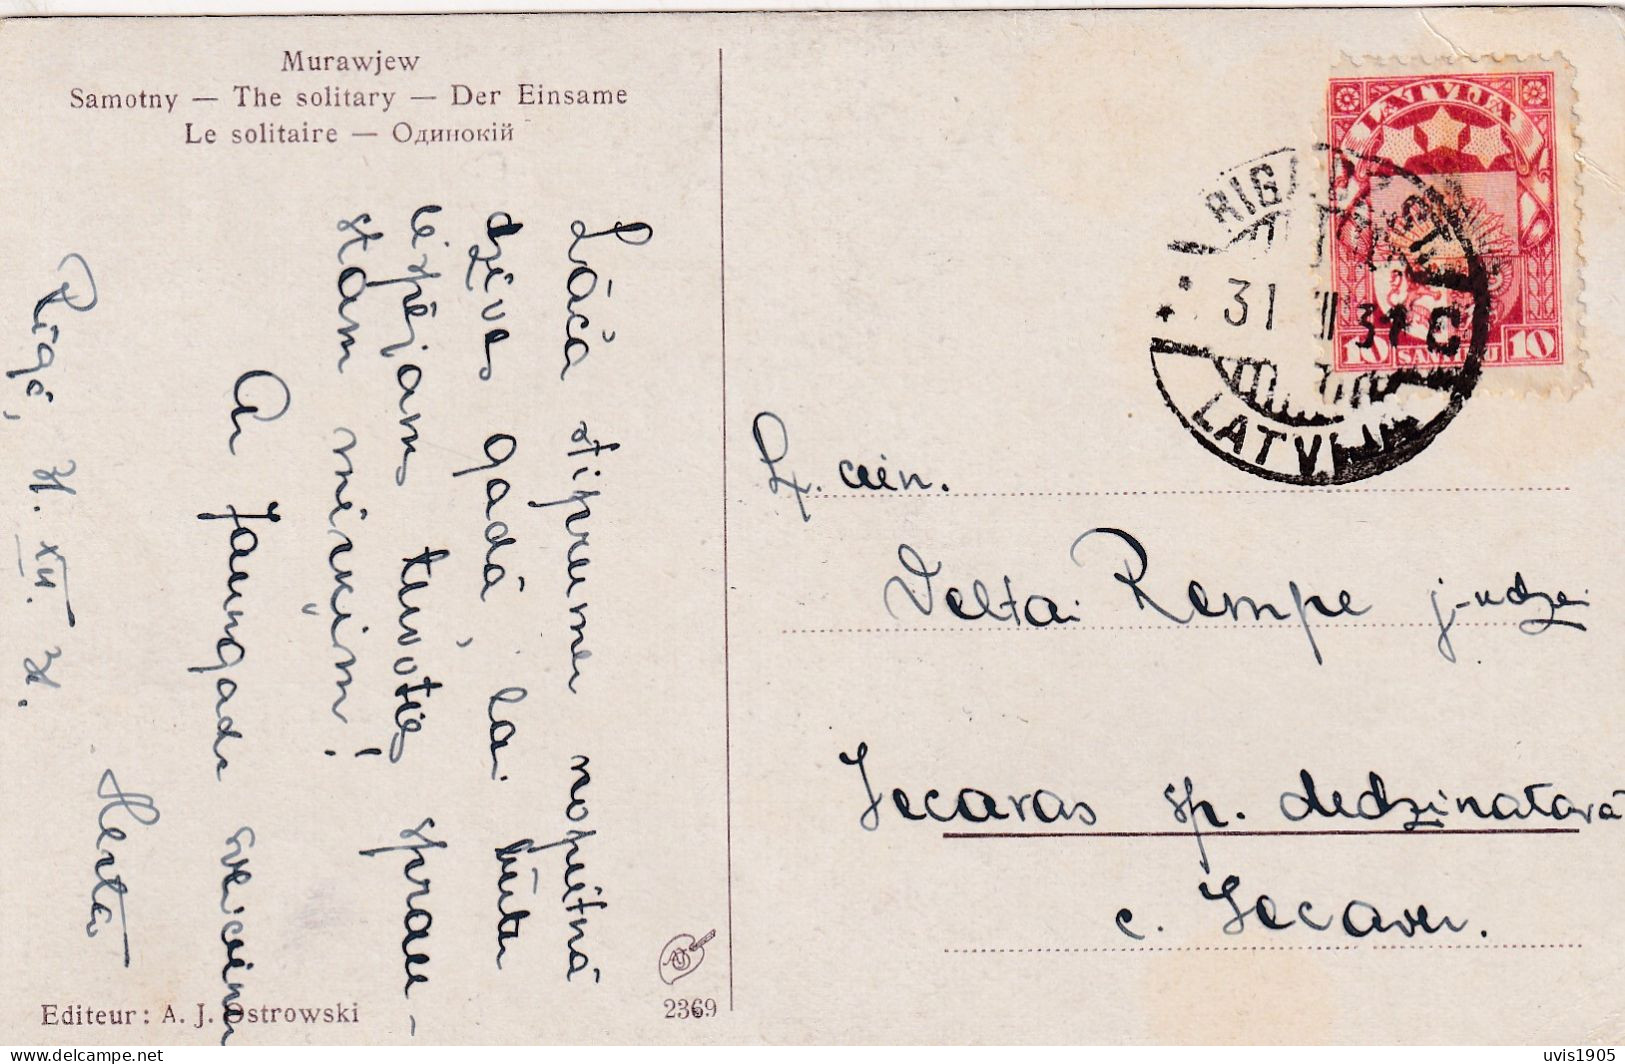 Murawjew
Samotny — The solitary — Der Einsame
Le solitaire — Одинокій
Lāča stiprumu nopietnā
dzīves gadā, lai būtu
iespējams tuvoties sprau-
stam mērķim!
Ar Jaungada sveicienu
Herta
Rīgā, 31. XII. 31.
Editeur: A. J. Ostrowski
2369
LATVIJA
10 SANTIMU 10
RIGA
31 XII 31 C
LATVIJA
cien.
Velta Rempe j-udze
Iecavas sp. dedzinatavā
c. Iecavu.
uvis1905